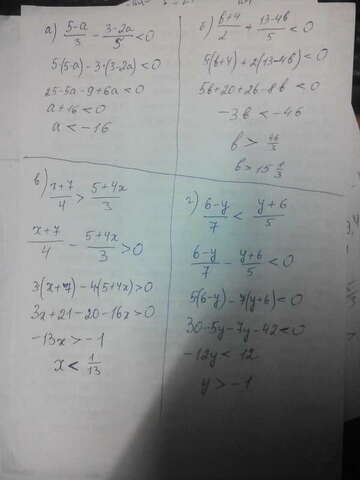 а) (5-a)/3 - (3-2a)/5 < 0
5(5-a) - 3·(3-2a) < 0
25-5a-9+6a < 0
a+16 < 0
a < -16
б) (b+4)/2 + (13-4b)/5 < 0
5(b+4) + 2(13-4b) < 0
5b+20+26-8b < 0
-3b < -46
b > 46/3
b > 15 1/3
в) (x+7)/4 > (5+4x)/3
(x+7)/4 - (5+4x)/3 > 0
3(x+7) - 4(5+4x) > 0
3x+21-20-16x > 0
-13x > -1
x < 1/13
г) (6-y)/7 < (y+6)/5
(6-y)/7 - (y+6)/5 < 0
5(6-y) - 7(y+6) < 0
30-5y-7y-42 < 0
-12y < 12
y > -1